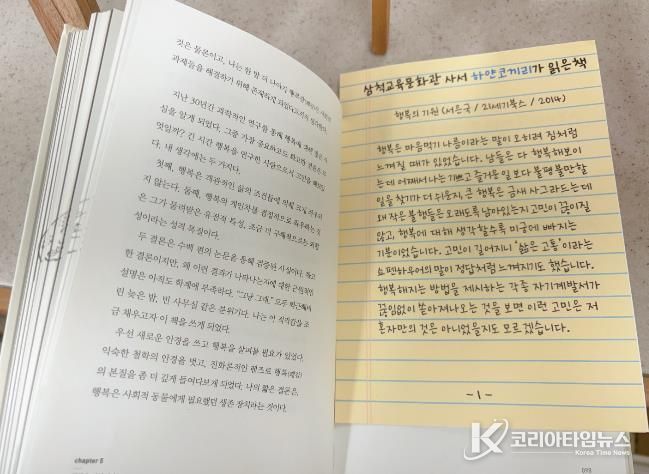 것은 물론이고, 나는 한 발 더 나아가
과제들을 해결하기 위해
지난 30년간 과학적인 연구를 통해 행복에 대한 많은 사
실을 알게 되었다. 그중 가장 중요하고도 확고한 결론은 무
엇일까? 긴 시간 행복을 연구한 사람으로서 고민을 해보았
다. 내 생각에는 두 가지다.
첫째, 행복은 객관적인 삶의 조건들에 의해 크게 좌우되
지 않는다. 둘째, 행복의 개인차를 결정적으로 좌우하는 것
은 그가 물려받은 유전적 특성, 조금 더 구체적으로는 외향
성이라는 성격 특질이다.
두 결론은 수백 편의 논문을 통해 검증된 사실이다. 확고
한 결론이지만, 왜 이런 결과가 나타나는지에 대한 근원적인
설명은 아직도 학계에 부족하다. "그냥 그래." 모두 퇴근해버
린 늦은 밤, 빈 사무실 같은 분위기다. 나는 이 적막감을 조
금 채우고자 이 책을 쓰게 되었다.
우선 새로운 안경을 쓰고 행복을 살펴볼 필요가 있었다.
익숙한 철학의 안경을 벗고, 진화론적인 렌즈로 행복(쾌감)
의 본질을 좀 더 깊게 들여다보게 되었다. 나의 짧은 결론은,
행복은 사회적 동물에게 필요했던 생존 장치라는 것이다.
chapter 5
삼척교육문화관 사서 하얀코끼리가 읽은 책
행복의 기원 (서은국 / 21세기북스 / 2014)
행복은 마음먹기 나름이라는 말이 오히려 짐처럼
느껴질 때가 있었습니다. 남들은 다 행복해보이
는데 어째서 나는 기쁘고 즐거운 일보다 불평불만할
일을 찾기가 더 쉬운지, 큰 행복은 금새 사그라드는데
왜 작은 불행들은 오래도록 남아있는지 고민이 끊이질
않고, 행복에 대해 생각할수록 미궁에 빠지는
기분이었습니다. 고민이 길어지니 '삶은 고통'이라는
쇼펜하우어의 말이 정답처럼 느껴지기도 했습니다.
행복해지는 방법을 제시하는 각종 자기계발서가
끊임없이 쏟아져나오는 것을 보면 이런 고민은 저
혼자만의 것은 아니었을지도 모르겠습니다.
- 1 -
193
코리아타임뉴스
Korea Time News